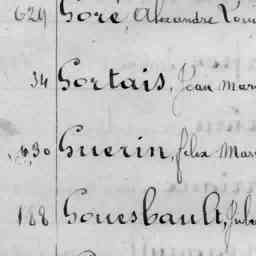 629 Goré, Alexandre Louis
34 Gortais, Jean Mar
630 Guerin, félix Mar
188 Gouesbault, Jules